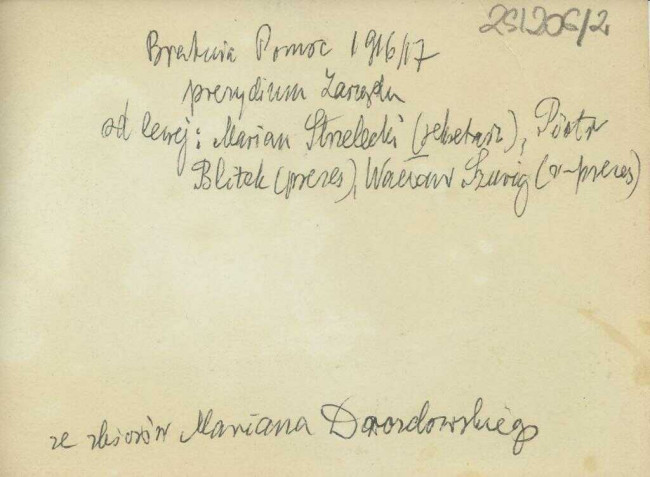 251206/2
Bratnia Pomoc 1916/17
prezydium Zarządu
od lewej: Marian Strzelecki (sekretarz), Piotr
Blitek (prezes), Wacław Szuwig (v-prezes)
ze zbiorów Mariana Drozdowskiego